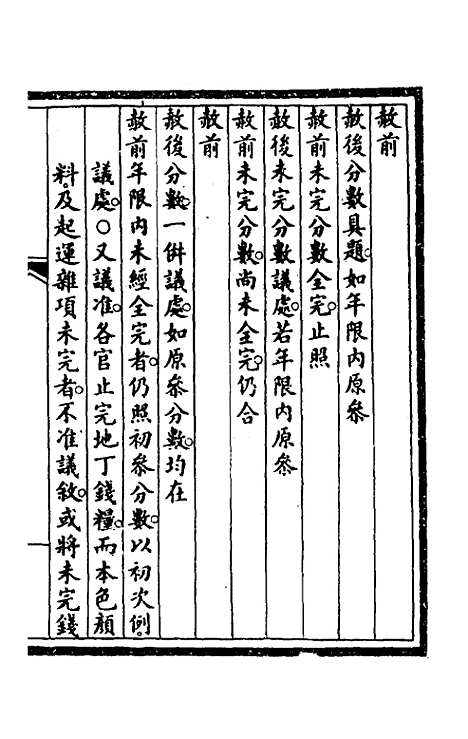 赦前
赦後分數具題。如年限內原參
赦前未完分數全完。止照
赦後未完分數議處。若年限內原參
赦前未完分數。尚未全完。仍合
赦前
赦後分數。一併議處。如原參分數。均在
赦前年限內未經全完者。仍照初參分數。以初次例。
議處。○又議准。各官止完地丁錢糧。而本色顏
料。及起運雜項未完者。不准議敘。或將未完錢